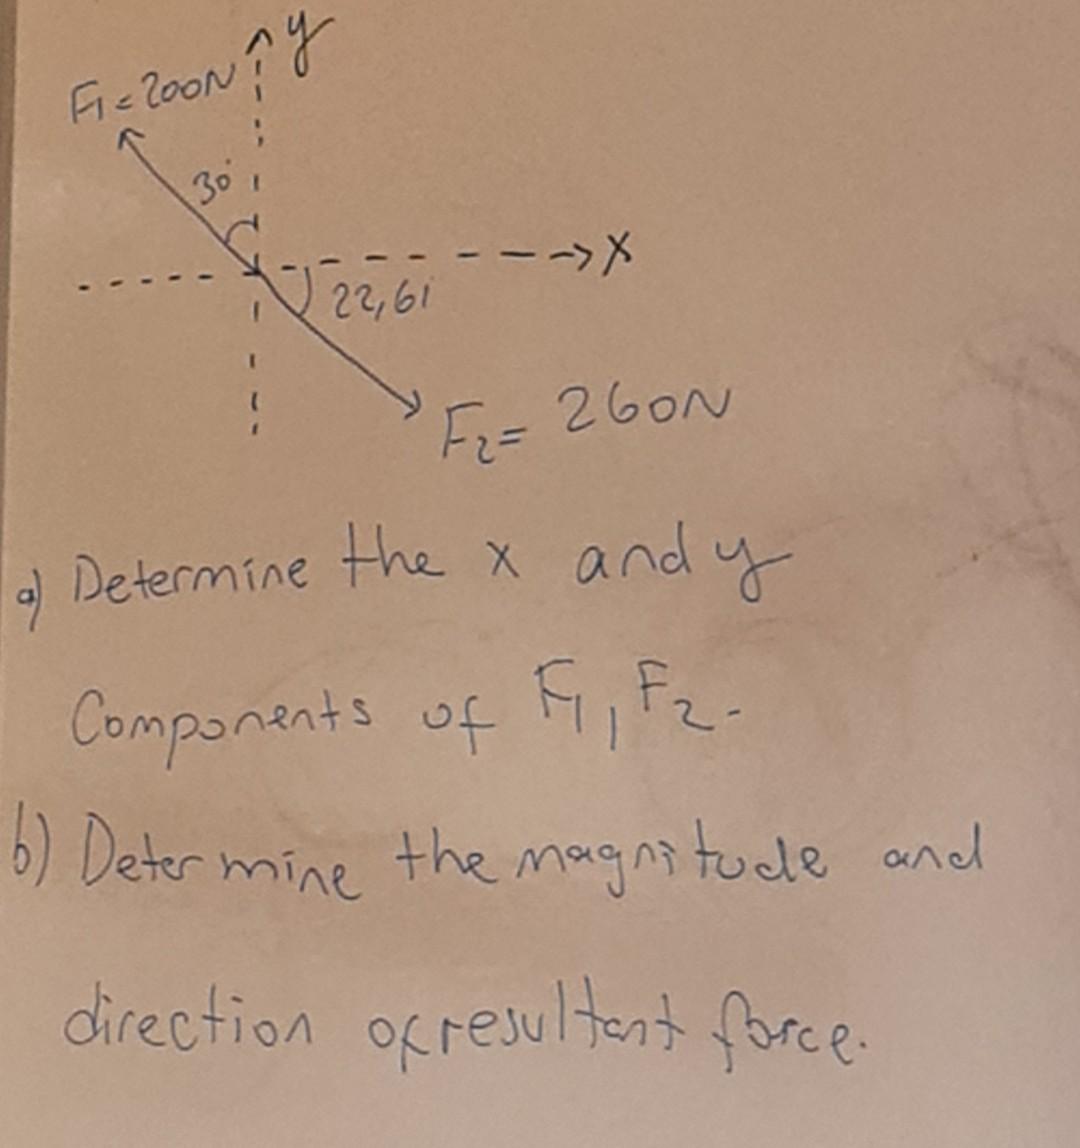 y
F1 = 200N
30°
x
22,61
F2 = 260N
a) Determine the x and y
Components of F1, F2.
b) Determine the magnitude and
direction of resultant force.